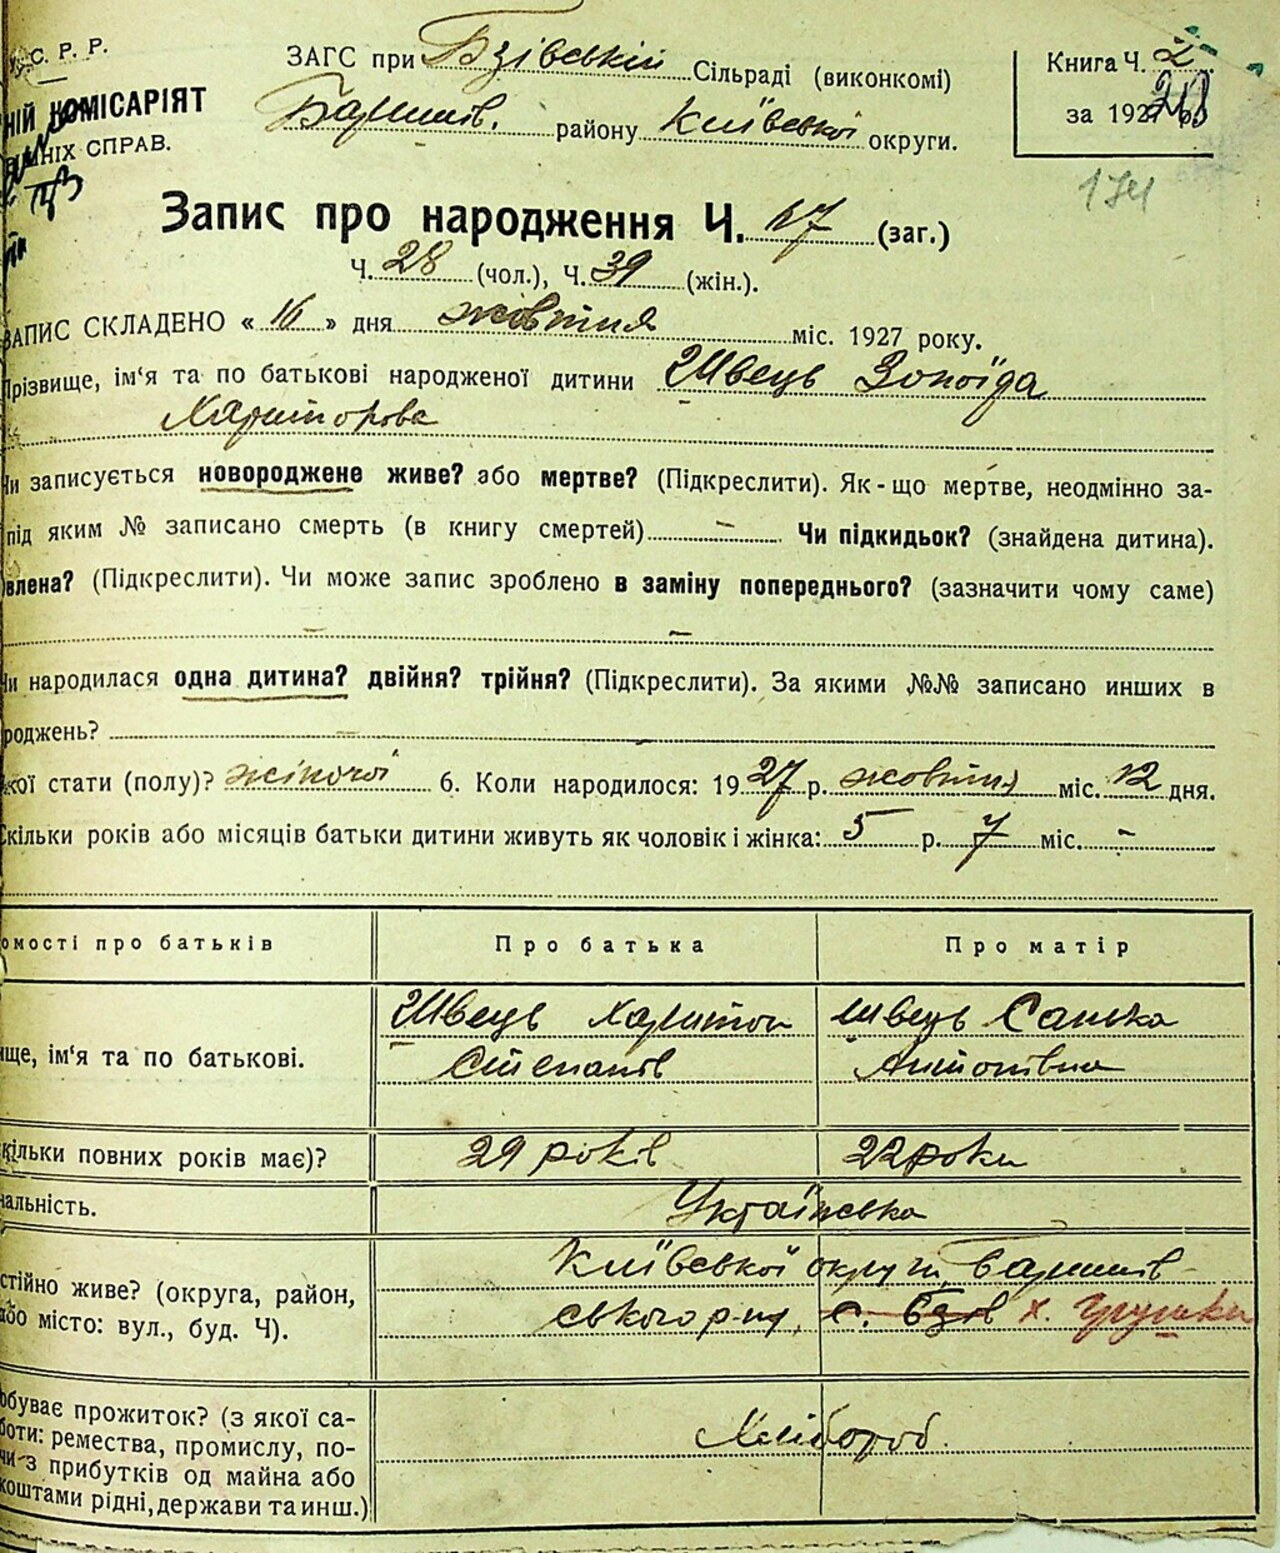 У. С. Р. Р.
НІЙ КОМІСАРІЯТ
ШНІХ СПРАВ.
ЗАГС при Бзівській Сільраді (виконкомі)
Баришів. району Київської округи.
Книга Ч. 2
за 1927
174
Запис про народження Ч. 67 (заг.)
Ч. 28 (чол.), Ч. 39 (жін.).
ЗАПИС СКЛАДЕНО « 16 » дня жовтня міс. 1927 року.
Прізвище, ім'я та по батькові народженої дитини Швець Зоноїда
Харитонова
Чи записується новороджене живе? або мертве? (Підкреслити). Як-що мертве, неодмінно за-
під яким № записано смерть (в книгу смертей) — Чи підкидьок? (знайдена дитина).
влена? (Підкреслити). Чи може запис зроблено в заміну попереднього? (зазначити чому саме)
— —
Чи народилася одна дитина? двійня? трійня? (Підкреслити). За якими №№ записано инших в
роджень? —
кої стати (полу)? жіночої 6. Коли народилося: 1927 р. жовтня міс. 12 дня.
Скільки років або місяців батьки дитини живуть як чоловік і жінка: 5 р. 7 міс. -
омості про батьків Про батька Про матір
ище, ім'я та по батькові. Швець Харитон Швець Санька
Степанів Антонівна
кільки повних років має)? 29 років 22 роки
нальність. Українська
стійно живе? (округа, район, Київської округи, Баришів-
або місто: вул., буд. Ч). ського р-ну, с. Бзів х. Грушки
обуває прожиток? (з якої са-
боти: ремества, промислу, по- Хлібороб.
чи з прибутків од майна або
коштами рідні, держави та инш.)